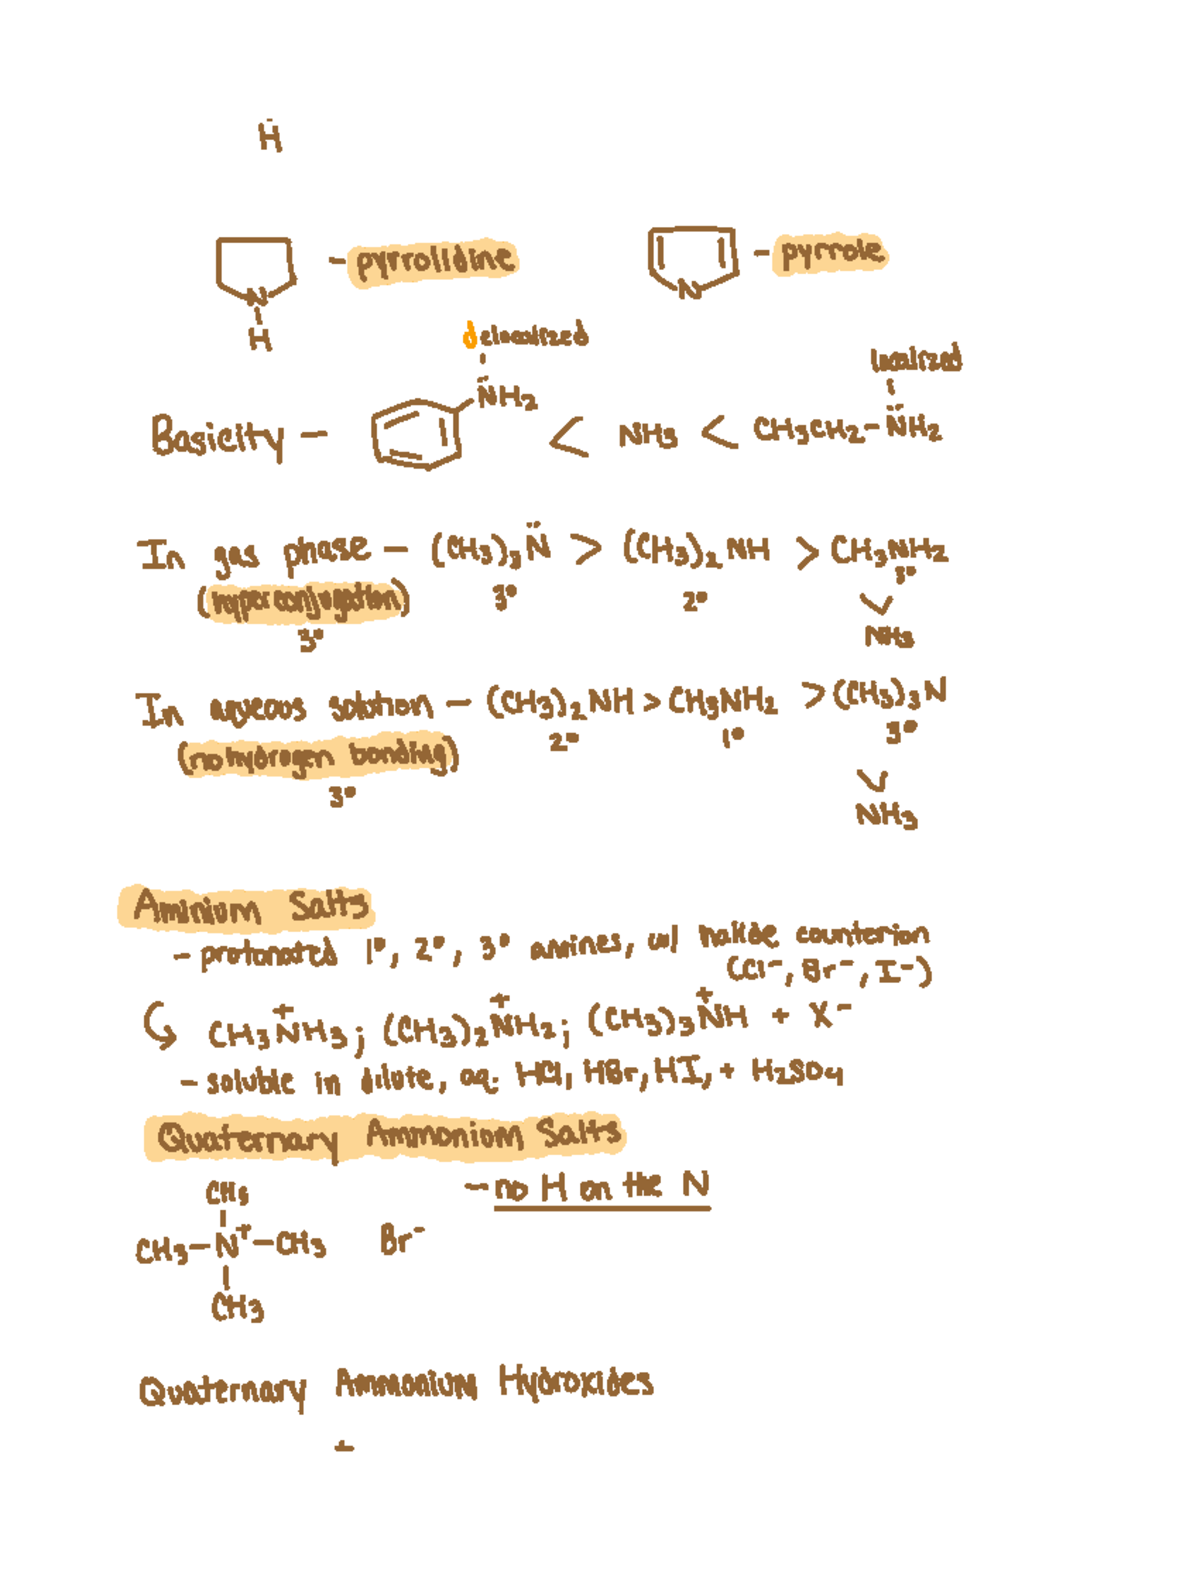 H
– pyrrolidine
– pyrrole
N
H
N
delocalized
localized
Basicity – N̈H2 < NH3 < CH3CH2–N̈H2
In gas phase – (CH3)3N̈ > (CH3)2NH > CH3NH2
(hyperconjugation) 3° 2° 1°
3°
>
NH3
In aqueous solution – (CH3)2NH > CH3NH2 > (CH3)3N
(no hydrogen bonding) 2° 1° 3°
3°
>
NH3
Aminium Salts
– protonated 1°, 2°, 3° amines, w/ halide counterion
(Cl⁻, Br⁻, I⁻)
CH3N⁺H3; (CH3)2N⁺H2; (CH3)3N⁺H + X⁻
– soluble in dilute, aq. HCl, HBr, HI, + H2SO4
Quaternary Ammonium Salts
– no H on the N
CH3
CH3–N⁺–CH3 Br⁻
CH3
Quaternary Ammonium Hydroxides
+